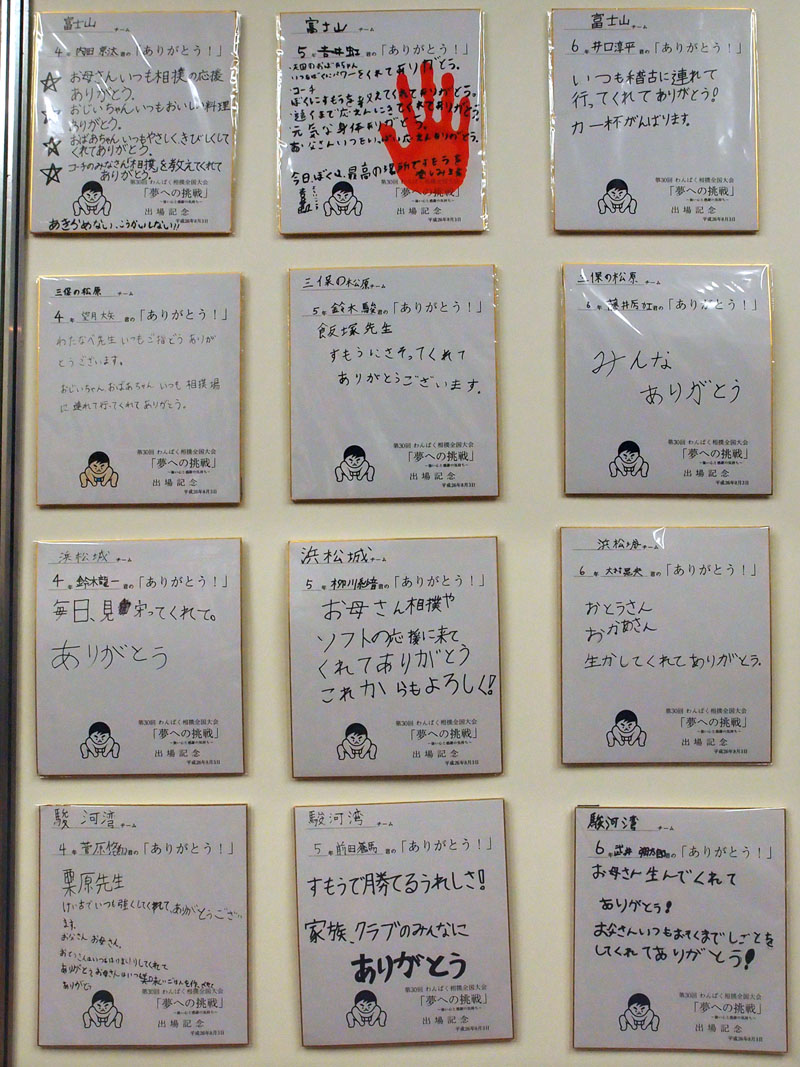 富士山チーム
4年 内田 君の「ありがとう！」
お母さんいつも相撲の応援
ありがとう。
おじいちゃんいつもおいしい料理
ありがとう。
おばあちゃんいつもやさしく、きびしくして
くれてありがとう。
コーチのみなさん「相撲」を教えてくれて
ありがとう。
第30回 わんぱく相撲全国大会
「夢への挑戦」
出場記念
平成26年8月3日
あきらめない、こうかいしない!!
富士山チーム
5年 君の「ありがとう！」
天国のおばあちゃん
いつもぼくにパワーをくれてありがとう。
コーチ
ぼくにすもうを教えてくれてありがとう。
遠くまで応えんにきてくれてありがとう。
元気な身体ありがとう。
お父さんいつもいっぱい応えんありがとう。
今日ぼくは、最高の場所ですもうを
楽しみます
第30回 わんぱく相撲全国大会
「夢への挑戦」
出場記念
平成26年8月3日
富士山チーム
6年 井口淳平君の「ありがとう！」
いつも稽古に連れて
行ってくれてありがとう!
力一杯がんばります。
第30回 わんぱく相撲全国大会
「夢への挑戦」
出場記念
平成26年8月3日
三保の松原チーム
4年 望月大矢君の「ありがとう！」
わたなべ先生いつもご指どうありが
とうございます。
おじいちゃんおばあちゃんいつも相撲場
に連れて行ってくれてありがとう。
第30回 わんぱく相撲全国大会
「夢への挑戦」
出場記念
平成26年8月3日
三保の松原チーム
5年 鈴木駿君の「ありがとう！」
飯塚先生
すもうにさそってくれて
ありがとうございます。
第30回 わんぱく相撲全国大会
「夢への挑戦」
出場記念
平成26年8月3日
三保の松原チーム
6年 藤井 君の「ありがとう！」
みんな
ありがとう
第30回 わんぱく相撲全国大会
「夢への挑戦」
出場記念
平成26年8月3日
浜松城チーム
4年 鈴木龍一君の「ありがとう！」
毎日、見守ってくれて。
ありがとう
第30回 わんぱく相撲全国大会
「夢への挑戦」
出場記念
平成26年8月3日
浜松城チーム
5年 柳川 君の「ありがとう！」
お母さん相撲や
ソフトの応援に来て
くれてありがとう
これからもよろしく!
第30回 わんぱく相撲全国大会
「夢への挑戦」
出場記念
平成26年8月3日
浜松城チーム
6年 君の「ありがとう！」
おとうさん
おかあさん
生かしてくれてありがとう。
第30回 わんぱく相撲全国大会
「夢への挑戦」
出場記念
平成26年8月3日
駿河湾チーム
4年 菅原 君の「ありがとう！」
栗原先生
けい古でいつも強くしてくれて、ありがとうござい
ます。
お父さんお母さん。
ありがとう
第30回 わんぱく相撲全国大会
「夢への挑戦」
出場記念
平成26年8月3日
駿河湾チーム
5年 前田 君の「ありがとう！」
すもうで勝てるうれしさ!
家族、クラブのみんなに
ありがとう
第30回 わんぱく相撲全国大会
「夢への挑戦」
出場記念
平成26年8月3日
駿河湾チーム
6年 武井 君の「ありがとう！」
お母さん生んでくれて
ありがとう!
お父さんいつもおそくまでしごとを
してくれてありがとう!
第30回 わんぱく相撲全国大会
「夢への挑戦」
出場記念
平成26年8月3日